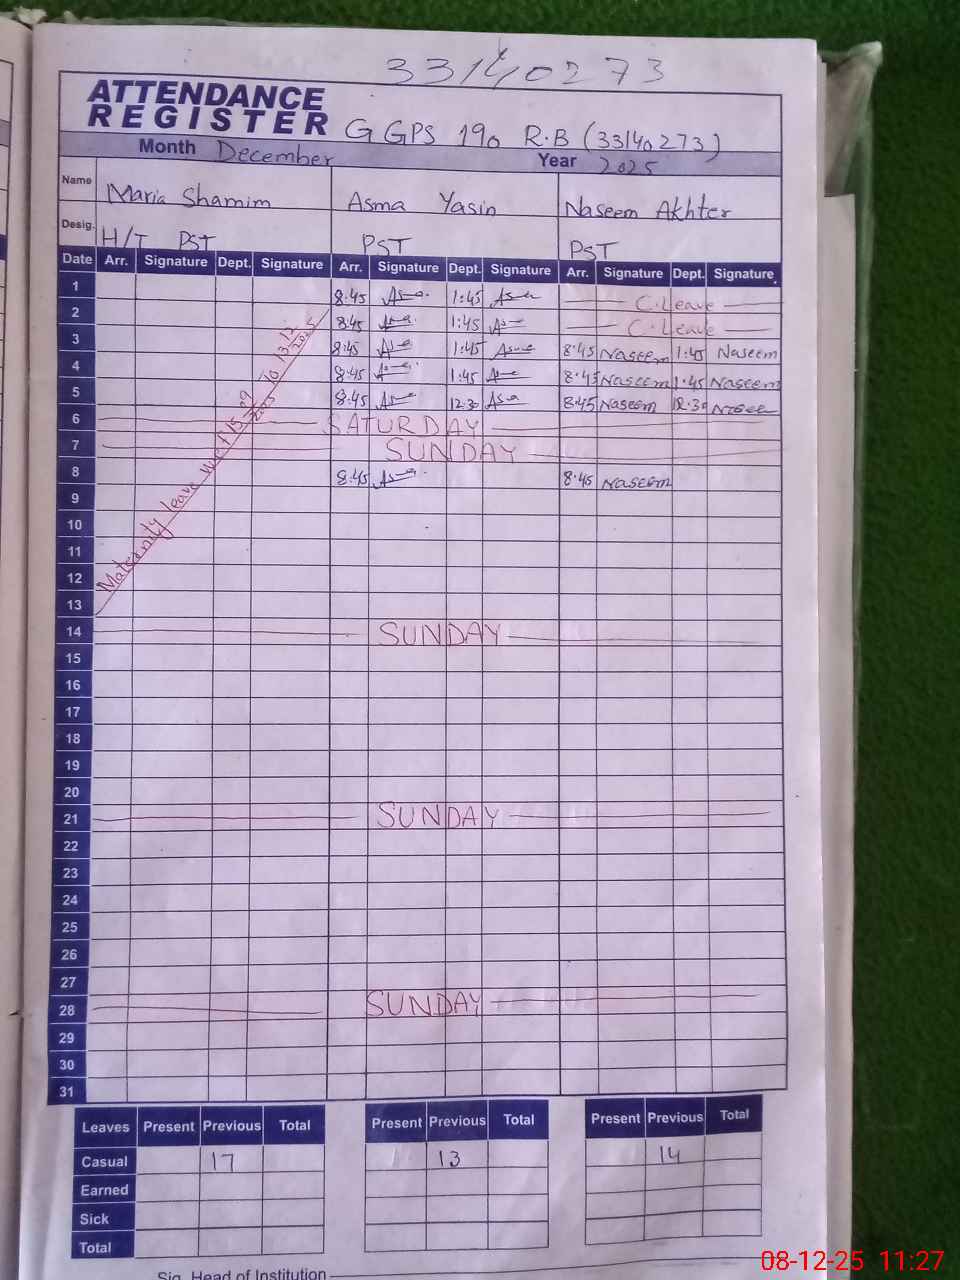 33140273
ATTENDANCE
REGISTER GGPS 190 R.B (33140273)
Month December Year 2025
Name Maria Shamim Asma Yasin Naseem Akhter
Desig. H/T PST PST PST
Date Arr. Signature Dept. Signature Arr. Signature Dept. Signature Arr. Signature Dept. Signature
1 8:45 Asma 1:45 Asma C.Leave
2 8:45 Asma 1:45 Asma C.Leave
3 8:45 Asma 1:45 Asma 8:45 Naseem 1:45 Naseem
4 8:45 Asma 1:45 Asma 8:45 Naseem 1:45 Naseem
5 8:45 Asma 12:30 Asma 8:45 Naseem 12:30 Naseem
6 SATURDAY
7 SUNDAY
8 8:45 Asma 8:45 Naseem
Maternity leave w.e.f 15.09.2025 To 13.12.2025
9
10
11
12
13
14 SUNDAY
15
16
17
18
19
20
21 SUNDAY
22
23
24
25
26
27
28 SUNDAY
29
30
31
Leaves Present Previous Total Present Previous Total Present Previous Total
Casual 17 13 14
Earned
Sick
Total
Sig. Head of Institution
08-12-25 11:27